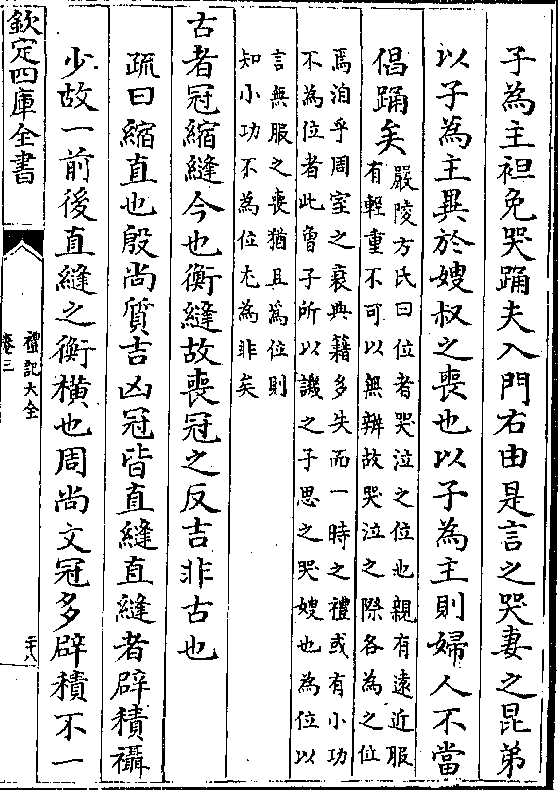 子為主袒免哭踊夫入門右由是言之哭妻之昆弟
以子為主異於嫂叔之喪也以子為主則婦人不當
倡踊矣
嚴陵方氏曰位者哭泣之位也親有遠近服
有輕重不可以無辨故哭泣之際各為之位
焉洎乎周室之衰典籍多失而一時之禮或有小功
不為位者此曾子所以譏之子思之哭嫂也為位以
言無服之喪猶且為位則
知小功不為位尤為非矣
古者冠縮縫今也衡縫故喪冠之反吉非古也
疏曰縮直也殷尚質吉凶冠皆直縫直縫者辟積襵
少故一前後直縫之衡橫也周尚文冠多辟積不一
欽定四庫全書
禮記大全
卷三
二十八